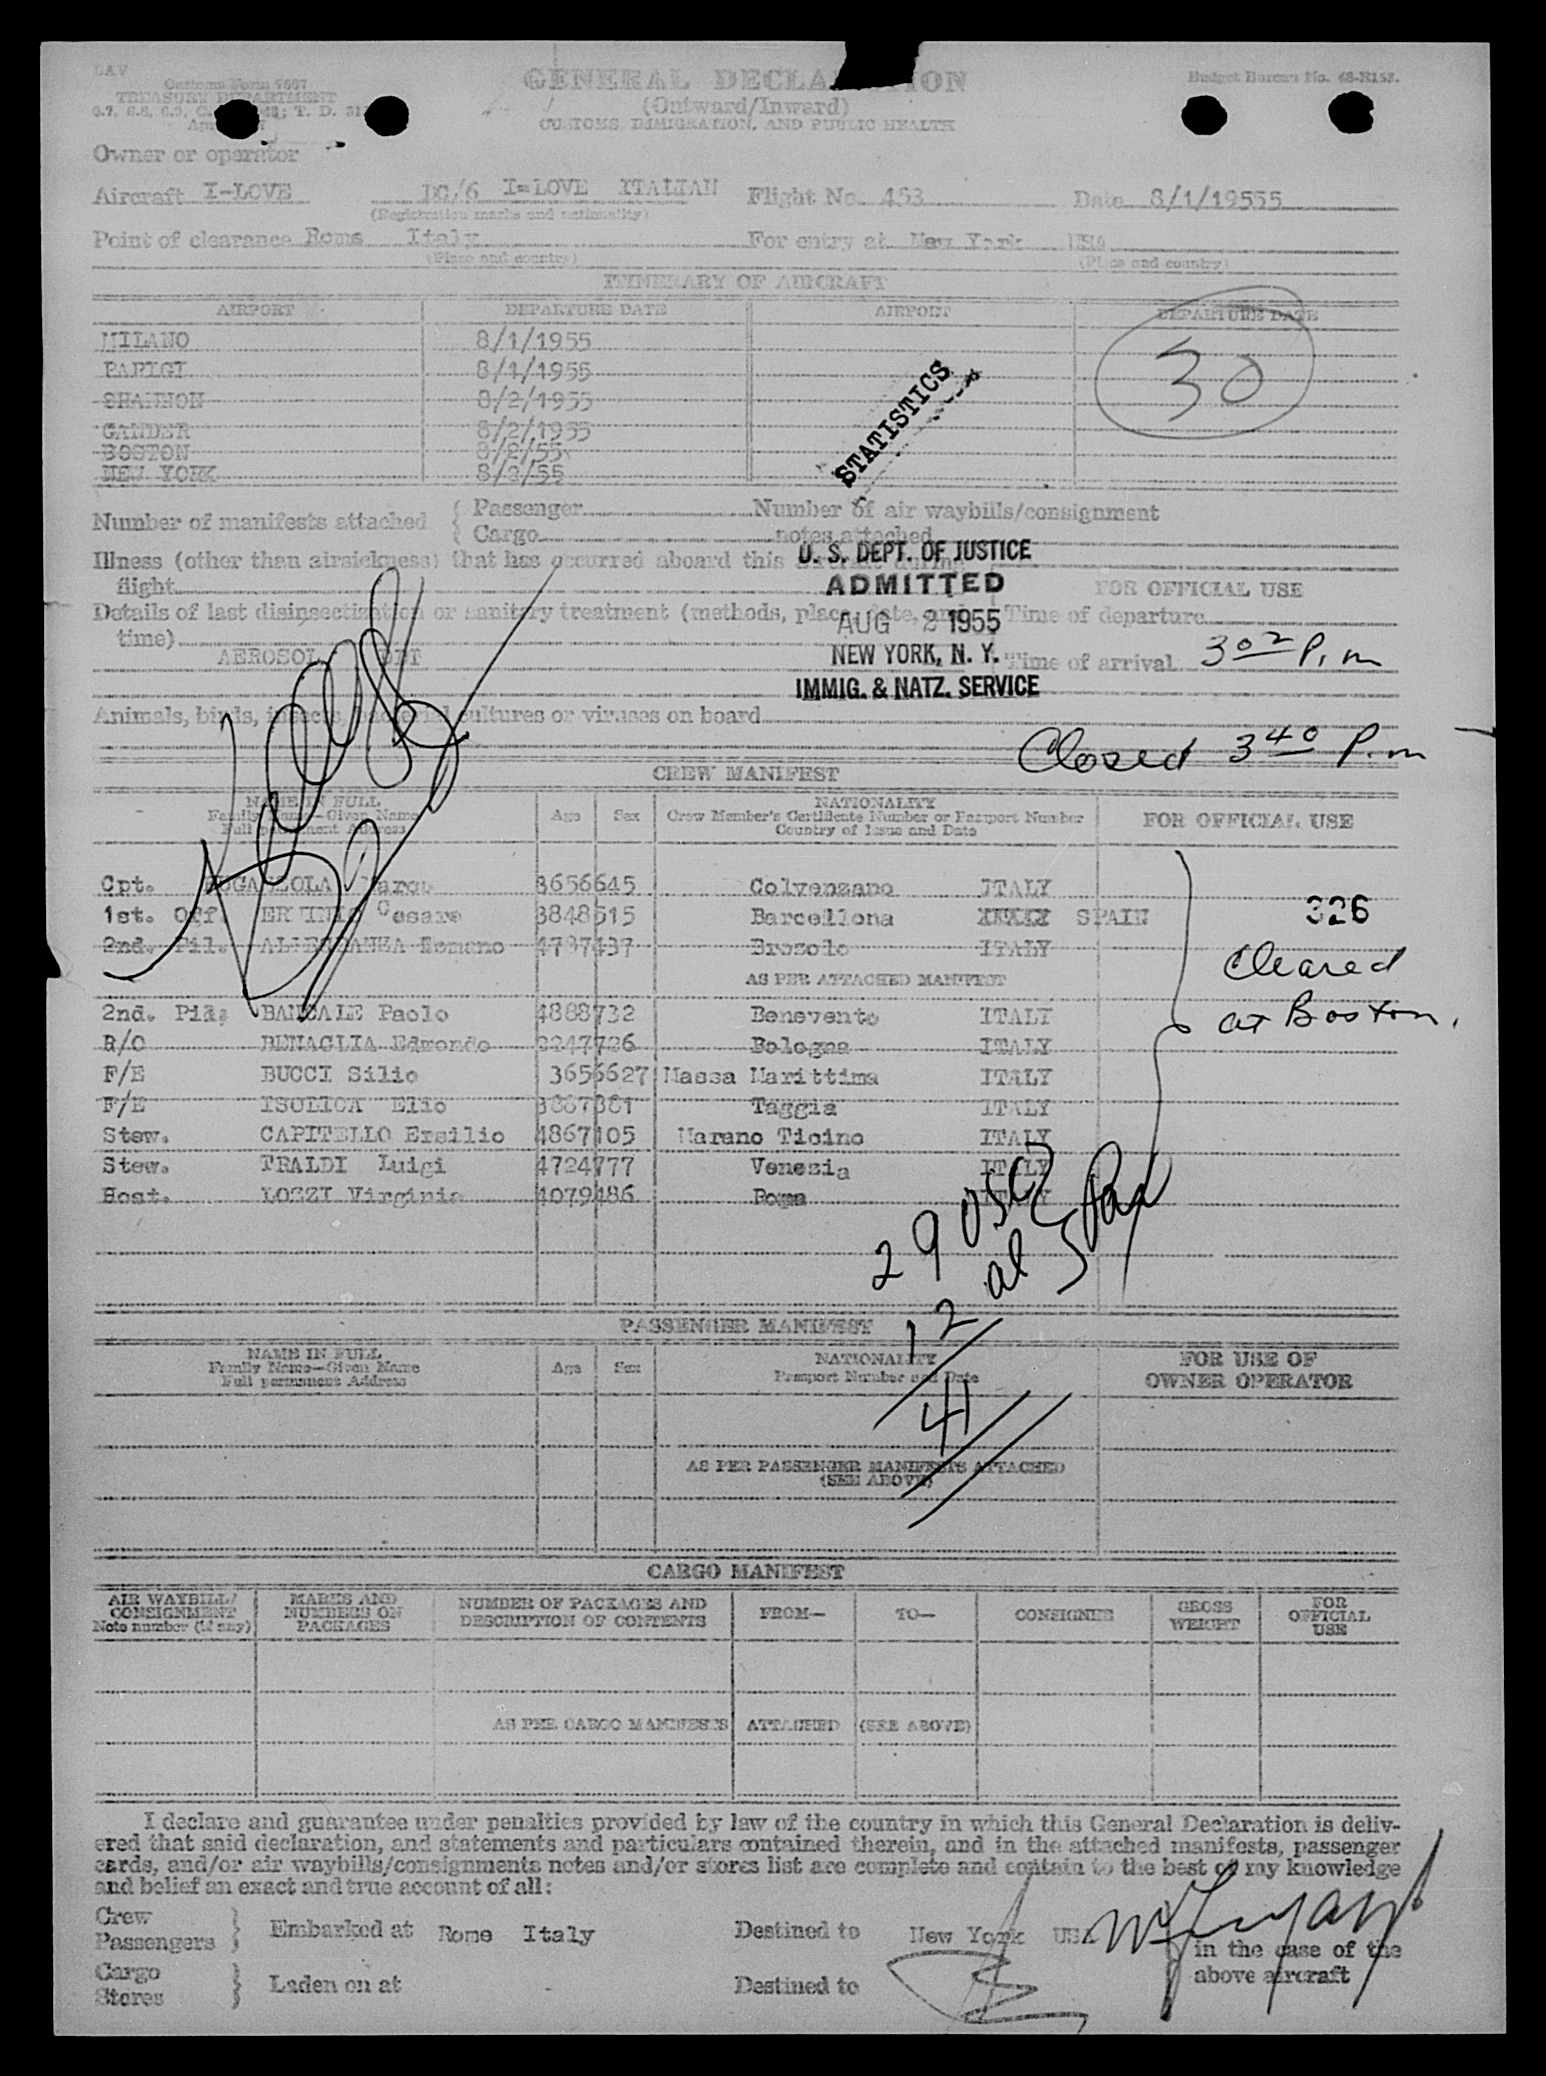 GENERAL DECLA ION
Budget Bureau No. 68-R153.
Customs Form 7507
TREASURY DEPARTMENT
(Outward/Inward)
CUSTOMS, IMMIGRATION, AND PUBLIC HEALTH
Owner or operator
Aircraft I-LOVE DC/6 I-LOVE ITALIAN Flight No. 453 Date 8/1/19555
(Registration marks and nationality)
Point of clearance Rome Italy For entry at New York USA
(Place and country) (Place and country)
ITINERARY OF AIRCRAFT
AIRPORT DEPARTURE DATE AIRPORT DEPARTURE DATE
MILANO 8/1/1955
PARIGI 8/1/1955
30
SHANNON 8/2/1955
GANDER 8/2/1955
BOSTON 8/2/55
NEW YORK 8/2/55
STATISTICS
Number of manifests attached { Passenger Number of air waybills/consignment
Cargo notes attached
Illness (other than airsickness) that has occurred aboard this during
flight
U. S. DEPT. OF JUSTICE
ADMITTED
AUG 2 1955
NEW YORK, N. Y.
IMMIG. & NATZ. SERVICE
FOR OFFICIAL USE
Details of last disinsectization or sanitary treatment (methods, place, date, and
time)
Time of departure
AEROSOL DDT
Time of arrival 3 02 P.m
Animals, birds, insects, bacterial cultures or viruses on board
Closed 3 40 P.m
CREW MANIFEST
NAME IN FULL
Family Name—Given Name
Full permanent Address
Age Sex
NATIONALITY
Crew Member's Certificate Number or Passport Number
Country of Issue and Date
FOR OFFICIAL USE
Cpt. 3656645 Colvenzano ITALY
1st. Off. Cesare 3848515 Barcellona XXXXX SPAIN
326
2nd. Pil. Romano 4797437 Brozolo ITALY
Cleared
AS PER ATTACHED MANIFEST
2nd. Pil. BANCALE Paolo 4888732 Benevento ITALY
at Boston.
R/O BENAGLIA Edmondo 2247726 Bologna ITALY
F/E BUCCI Silio 3656627 Massa Marittima ITALY
F/E ISOLICA Elio 3887381 Taggia ITALY
Stew. CAPITELLO Ersilio 4867105 Marano Ticino ITALY
Stew. TRALDI Luigi 4724777 Venezia ITALY
Host. LOZZI Virginia 4079486 Roma ITALY
29 USC
12 al } Pax
41
PASSENGER MANIFEST
NAME IN FULL
Family Name—Given Name
Full permanent Address
Age Sex
NATIONALITY
Passport Number and Date
FOR USE OF
OWNER OPERATOR
AS PER PASSENGER MANIFESTS ATTACHED
(SEE ABOVE)
CARGO MANIFEST
AIR WAYBILL/
CONSIGNMENT
Note number (if any)
MARKS AND
NUMBERS ON
PACKAGES
NUMBER OF PACKAGES AND
DESCRIPTION OF CONTENTS
FROM—
TO—
CONSIGNEE
GROSS
WEIGHT
FOR
OFFICIAL
USE
AS PER CARGO MANIFESTS ATTACHED (SEE ABOVE)
I declare and guarantee under penalties provided by law of the country in which this General Declaration is deliv-
ered that said declaration, and statements and particulars contained therein, and in the attached manifests, passenger
cards, and/or air waybills/consignments notes and/or stores list are complete and contain to the best of my knowledge
and belief an exact and true account of all:
Crew
Passengers } Embarked at Rome Italy Destined to New York USA
in the case of the
above aircraft
Cargo
Stores } Laden on at - Destined to